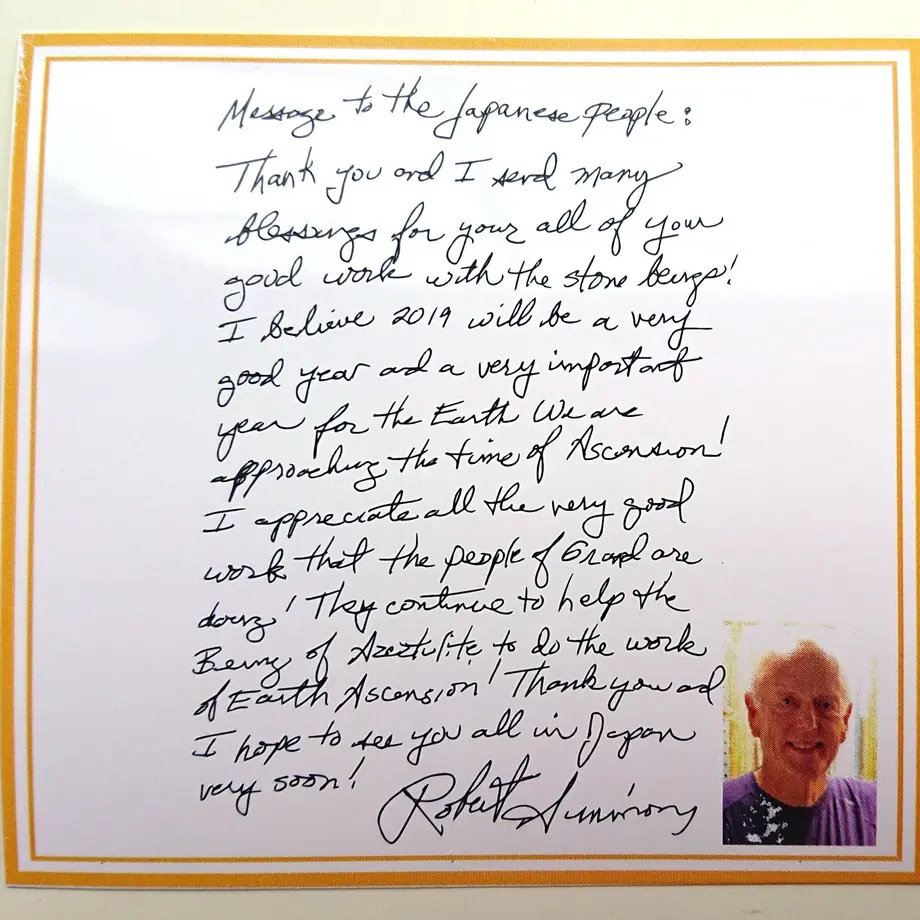 Message to the Japanese People:
Thank you and I send many
blessings for your all of your
good work with the stone beings!
I believe 2019 will be a very
good year and a very important
year for the Earth We are
approaching the time of Ascension!
I appreciate all the very good
work that the people of are
doing! They continue to help the
Being of Azeztulite to do the work
of Earth Ascension! Thank you and
I hope to see you all in Japan
very soon!
Robert Simmons